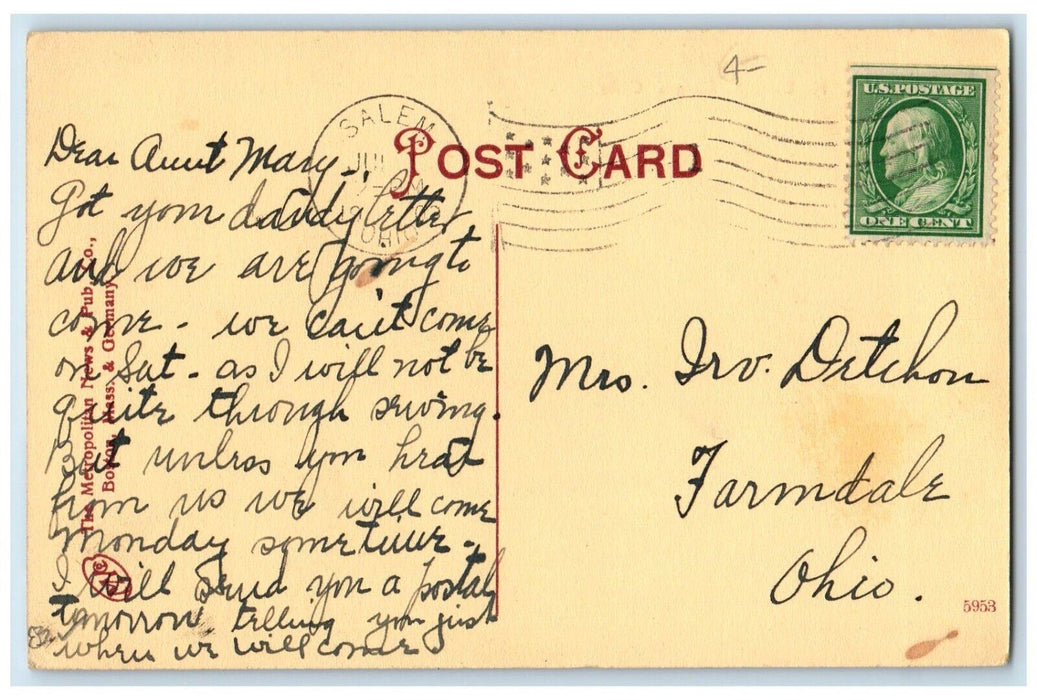 4-
U.S.POSTAGE
ONE CENT
SALEM
JUL
OHIO
POST CARD
Dear Aunt Mary -
Got your dandy letter
and we are going to
come - we can't come
on Sat. as I will not be
quite through sewing.
But unless you hear
from us we will come
Monday sometime -
I will send you a postal
tomorrow telling you just
when we will come
Mrs. Irv. Detchon
Farmdale
Ohio.
The Metropolitan News & Pub. Co.,
Boston, Mass. & Germany
5953